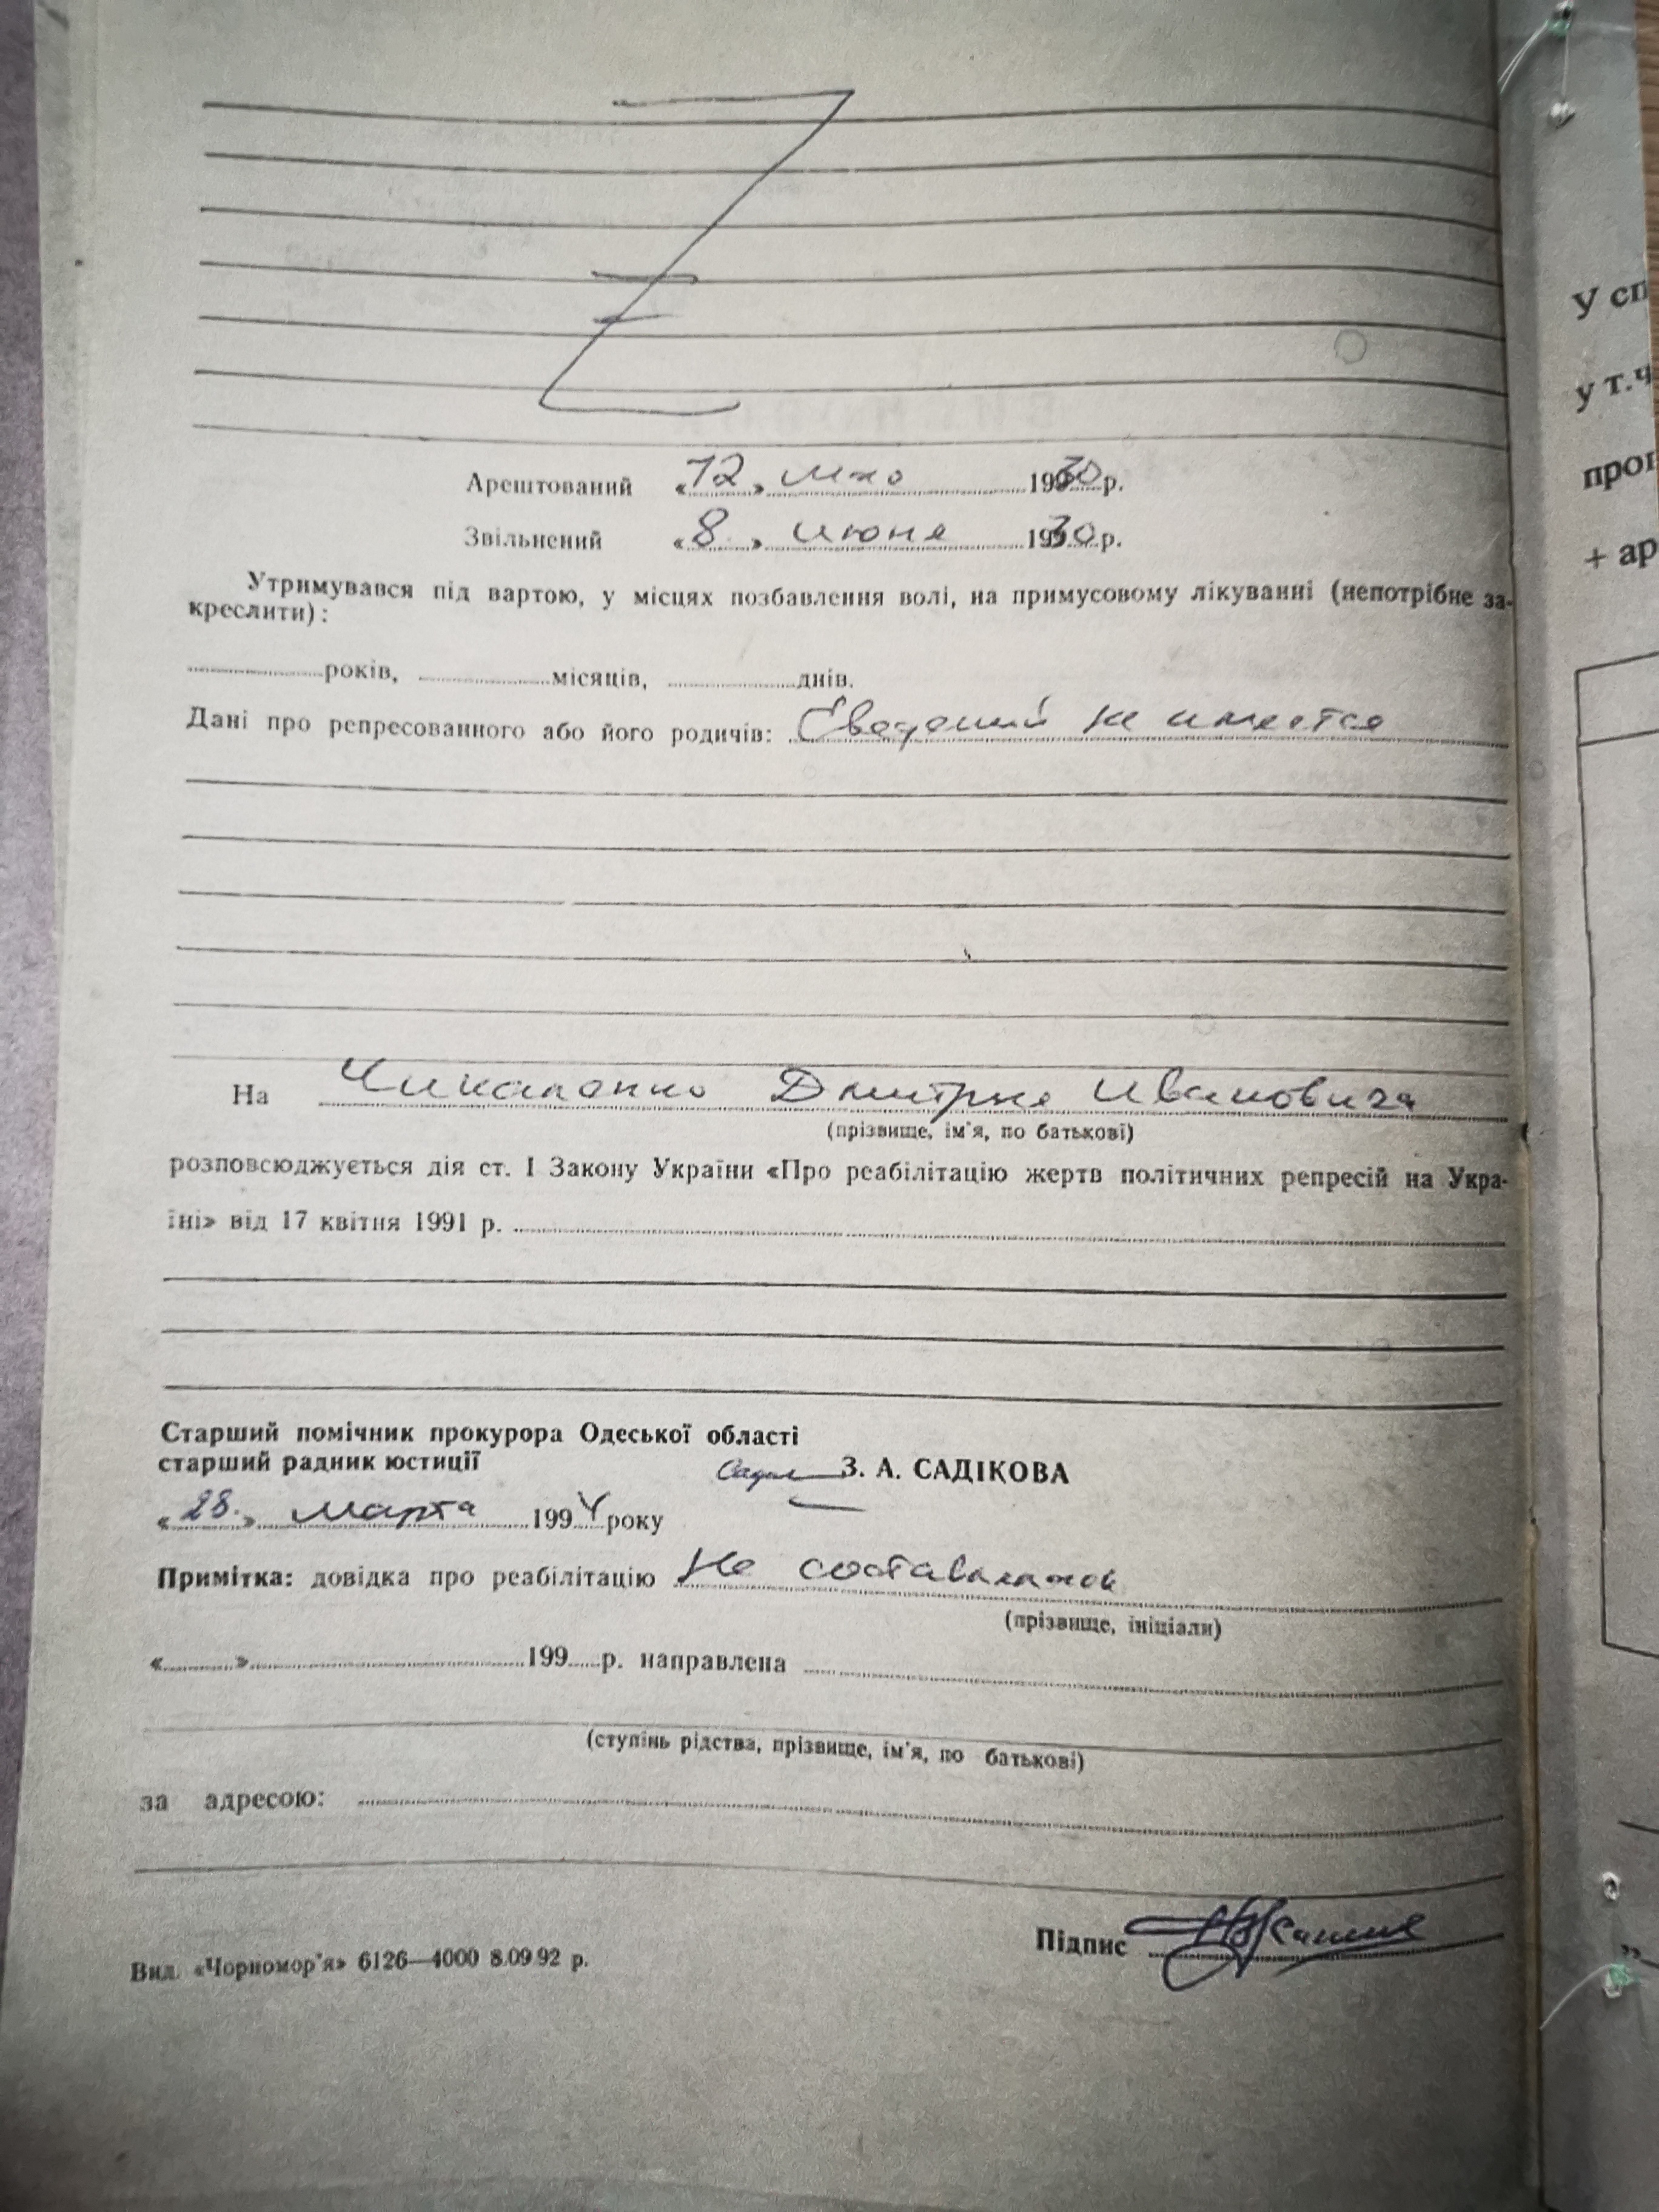 Арештований «12» мая 1930 р.
Звільнений «8» июня 1930 р.
Утримувався під вартою, у місцях позбавлення волі, на примусовому лікуванні (непотрібне за-
креслити):
років, місяців, днів.
Дані про репресованного або його родичів: Сведений не имеется
На Чикаленко Дмитрия Ивановича
(прізвище, ім'я, по батькові)
розповсюджується дія ст. I Закону України «Про реабілітацію жертв політичних репресій на Укра-
їні» від 17 квітня 1991 р.
Старший помічник прокурора Одеської області
старший радник юстиції
З. А. САДІКОВА
«28» марта 1994 року
Примітка: довідка про реабілітацію не составлялась
(прізвище, ініціали)
« » 199 р. направлена
(ступінь рідства, прізвище, ім'я, по батькові)
за адресою:
Підпис
Вид. «Чорномор'я» 6126—4000 8.09.92 р.
У сп
у т.ч
+ ар